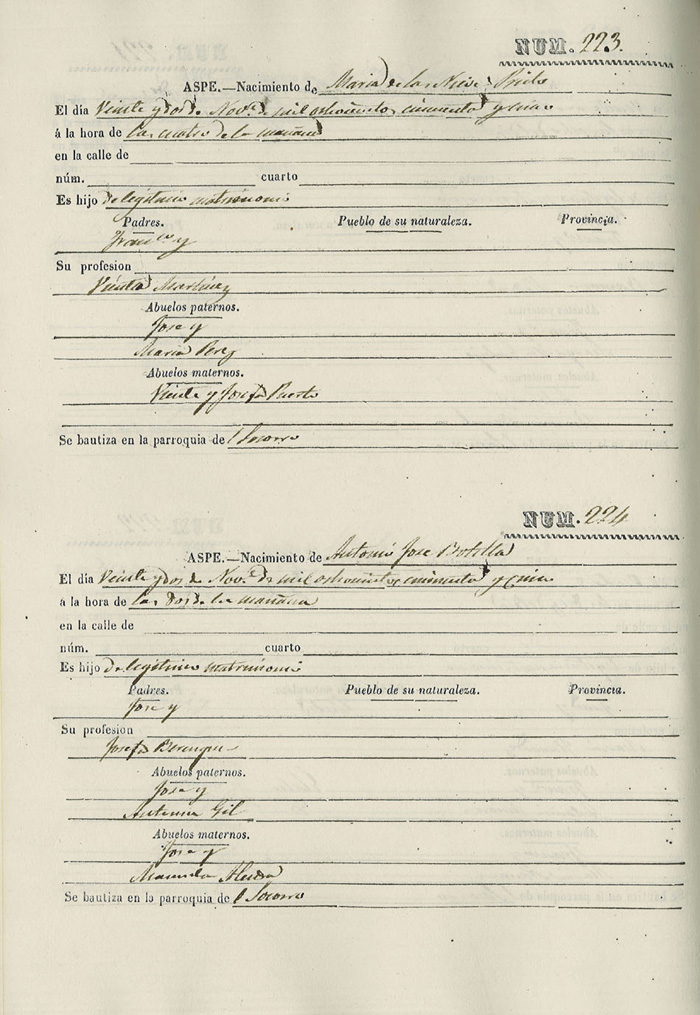 NUM. 223.
ASPE.—Nacimiento de Maria de las Nieves
El dia Veinte y dos de Nov.e de mil ochocientos cincuenta y cinco
á la hora de las cuatro de la mañana
en la calle de
núm. cuarto
Es hijo de legitimo matrimonio
Padres. Pueblo de su naturaleza. Provincia.
Fran.co y
Su profesion
Vicenta Martinez
Abuelos paternos.
Jose y
Maria Perez
Abuelos maternos.
Vicente y Josefa Puerto
Se bautiza en la parroquia de l Socorro
NUM. 224
ASPE.—Nacimiento de Antonio Jose Botella
El dia Veinte y dos de Nov.e de mil ochocientos cincuenta y cinco
á la hora de las dos de la mañana
en la calle de
núm. cuarto
Es hijo de legitimo matrimonio
Padres. Pueblo de su naturaleza. Provincia.
Jose y
Su profesion
Josefa Berenguer
Abuelos paternos.
Jose y
Antonia Gil
Abuelos maternos.
Jose y
Manuela
Se bautiza en la parroquia de l Socorro